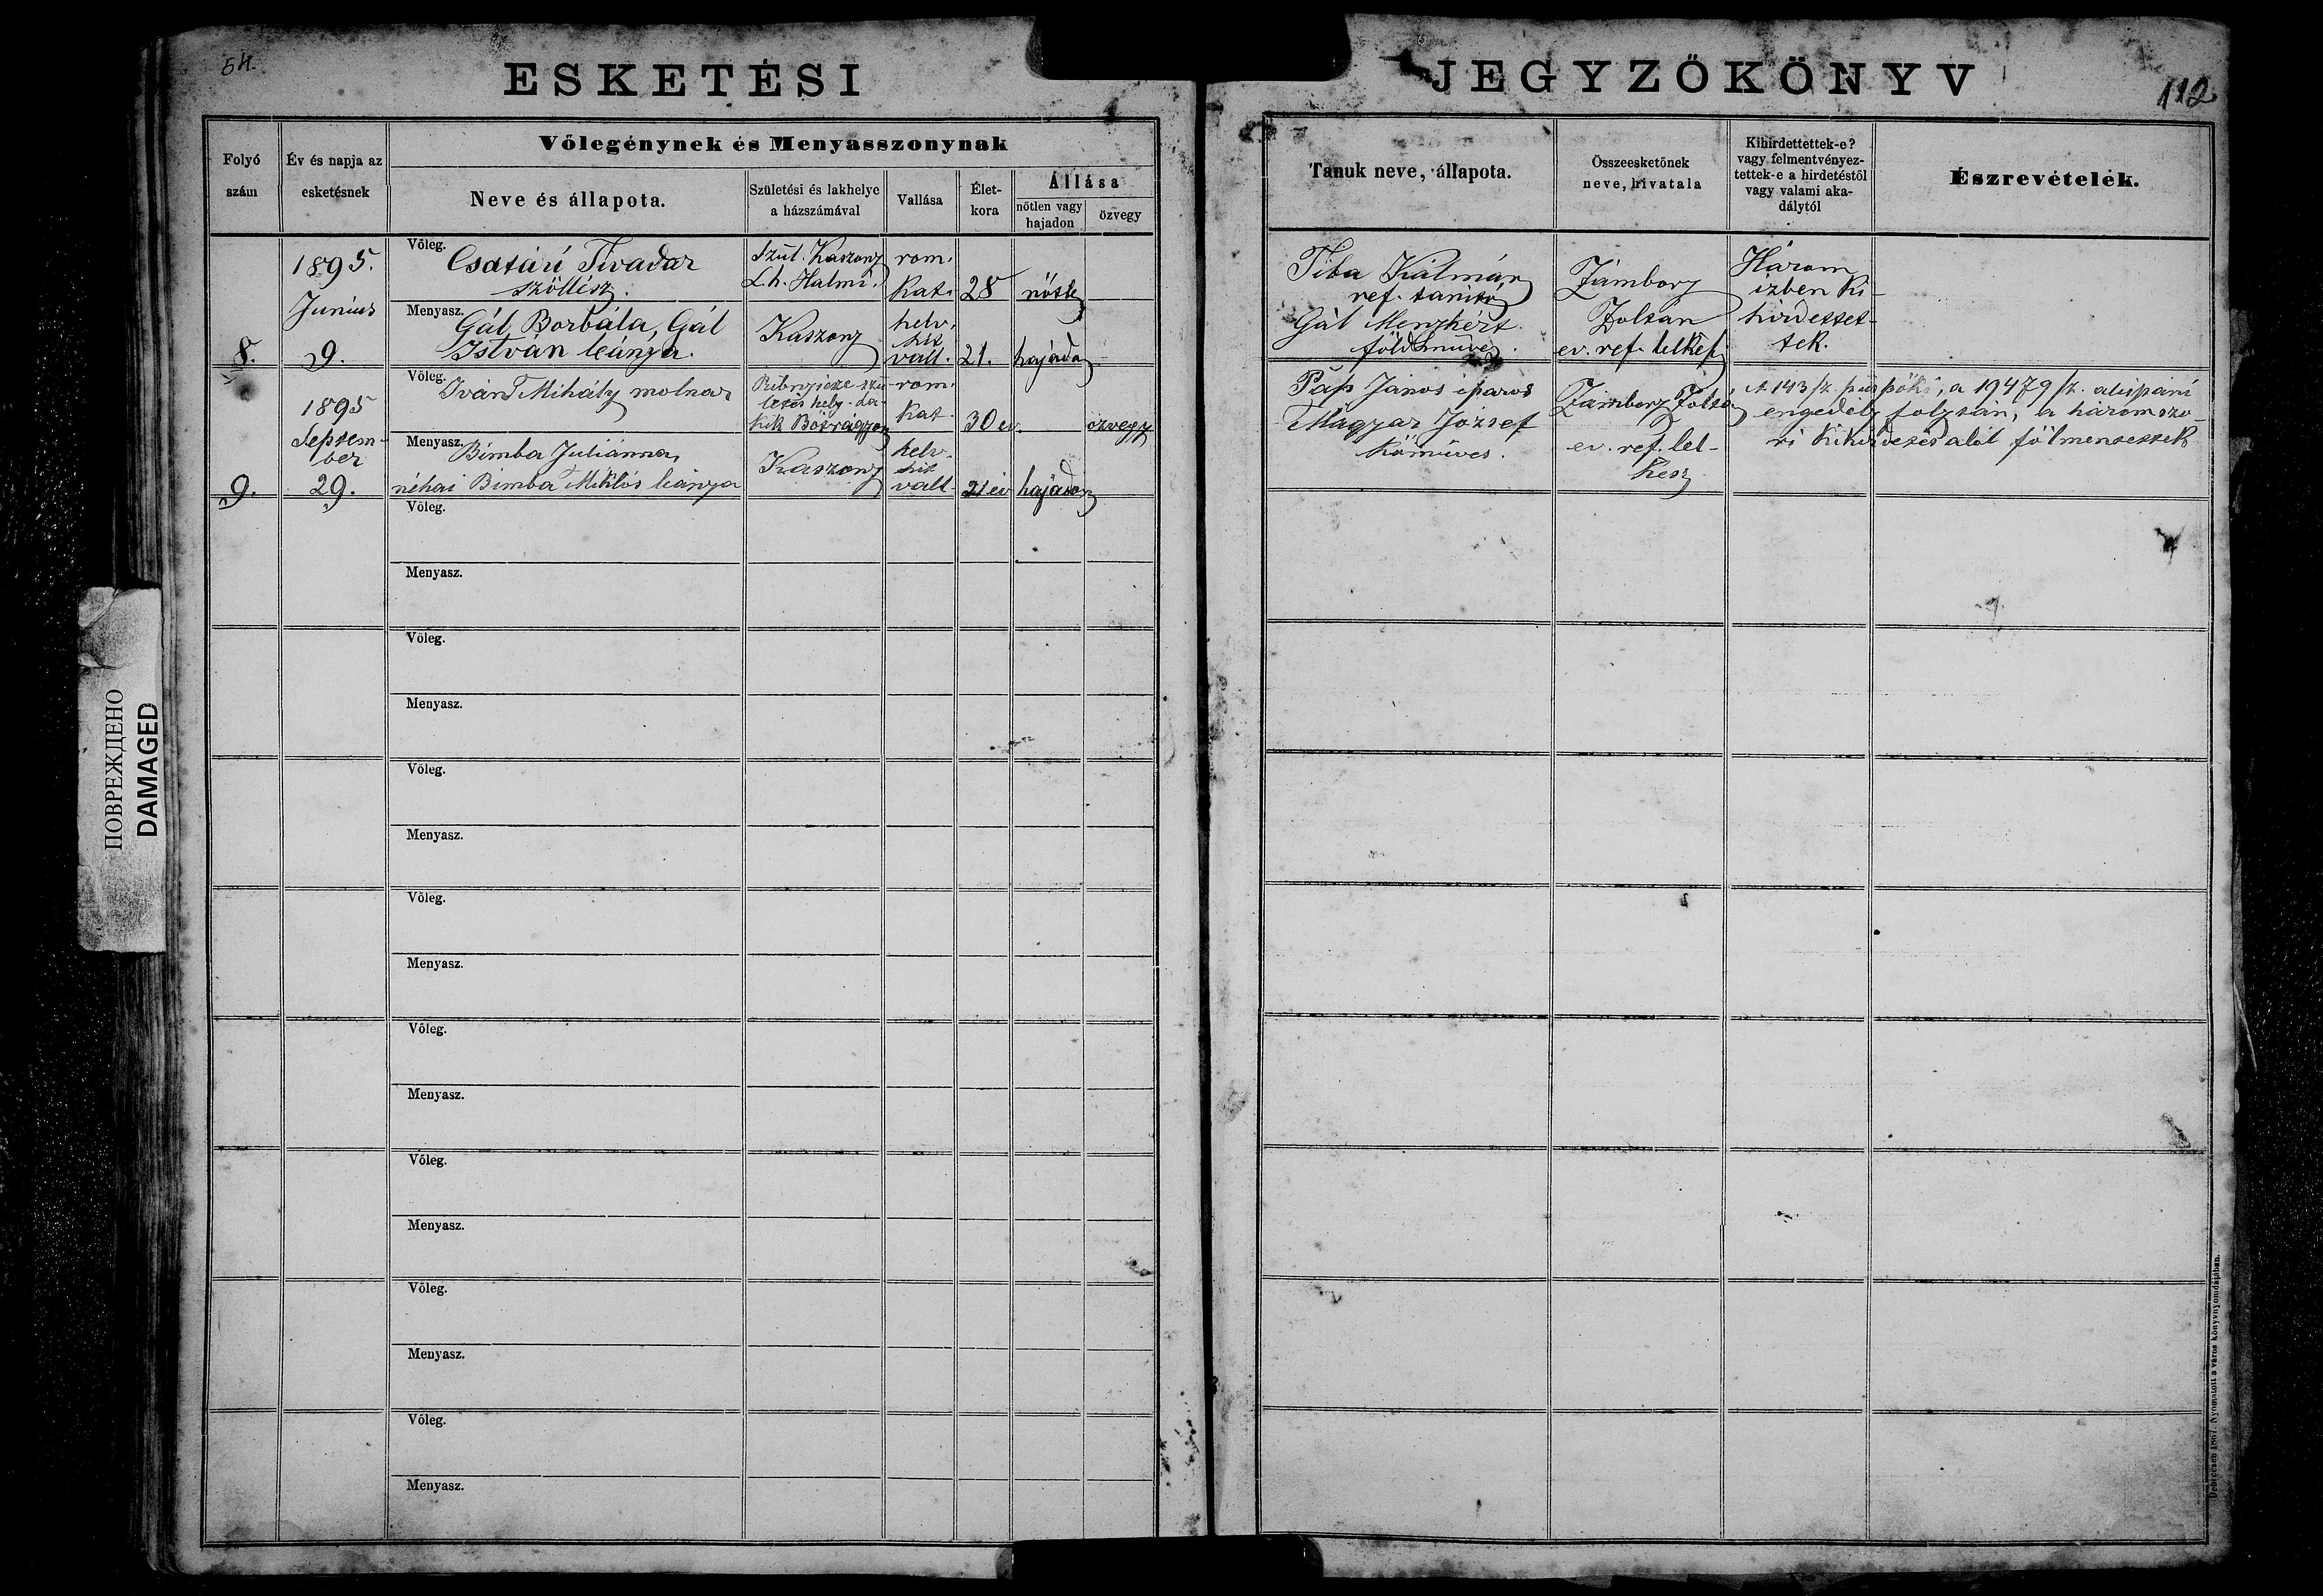 54.
ESKETÉSI
JEGYZŐKÖNYV
112
Folyó
szám
Év és napja az
esketésnek
Vőlegénynek és Menyasszonynak
Neve és állapota.
Születési és lakhelye
a házszámával
Vallása
Élet-
kora
Állása
nőtlen vagy
hajadon
özvegy
Tanuk neve, állapota.
Összeesketőnek
neve, hivatala
Kihirdettettek-e?
vagy felmentvényez-
tettek-e a hirdetéstől
vagy valami aka-
dálytól
Észrevételek.
8.
1895.
Junius
9.
Vőleg.
Csatári Tivadar
szöllész.
Szül. Kaszony
L.h. Halmi.
rom.
kat.
28
Menyasz.
Gál Borbála, Gál
István leánya.
Kaszony
helv.
hit
vall.
21.
hajadon
Tiba Kálmán
ref. tanitó
Gál Menyhért
földműves.
Zámbory
Zoltán
ev. ref. lelkész
Három
izben ki-
hirdettet-
tek.
9.
1895
Septem-
ber
29.
Vőleg.
Iván Mihály molnár
szü-
letés hely. La-
kik
rom.
kat.
30 év.
özvegy
Menyasz.
Bimba Juliánna,
néhai Bimba Miklós leánya
Kaszony
helv.
hit
vall.
21 év
hajadon
Páp János iparos
Magyar József
kőműves.
Zámbory Zoltán
ev. ref. lel-
kész
A 143/sz. püspöki, a 19479/sz. alispáni
engedély folytán, a három szo-
ri kihirdetés alól fölmentettek
Vőleg.
Menyasz.
Vőleg.
Menyasz.
Vőleg.
Menyasz.
Vőleg.
Menyasz.
Vőleg.
Menyasz.
Vőleg.
Menyasz.
Vőleg.
Menyasz.
Vőleg.
Menyasz.
ПОВРЕЖДЕНО
DAMAGED
Debreczen 1867. Nyomatott a város könyvnyomdájában.